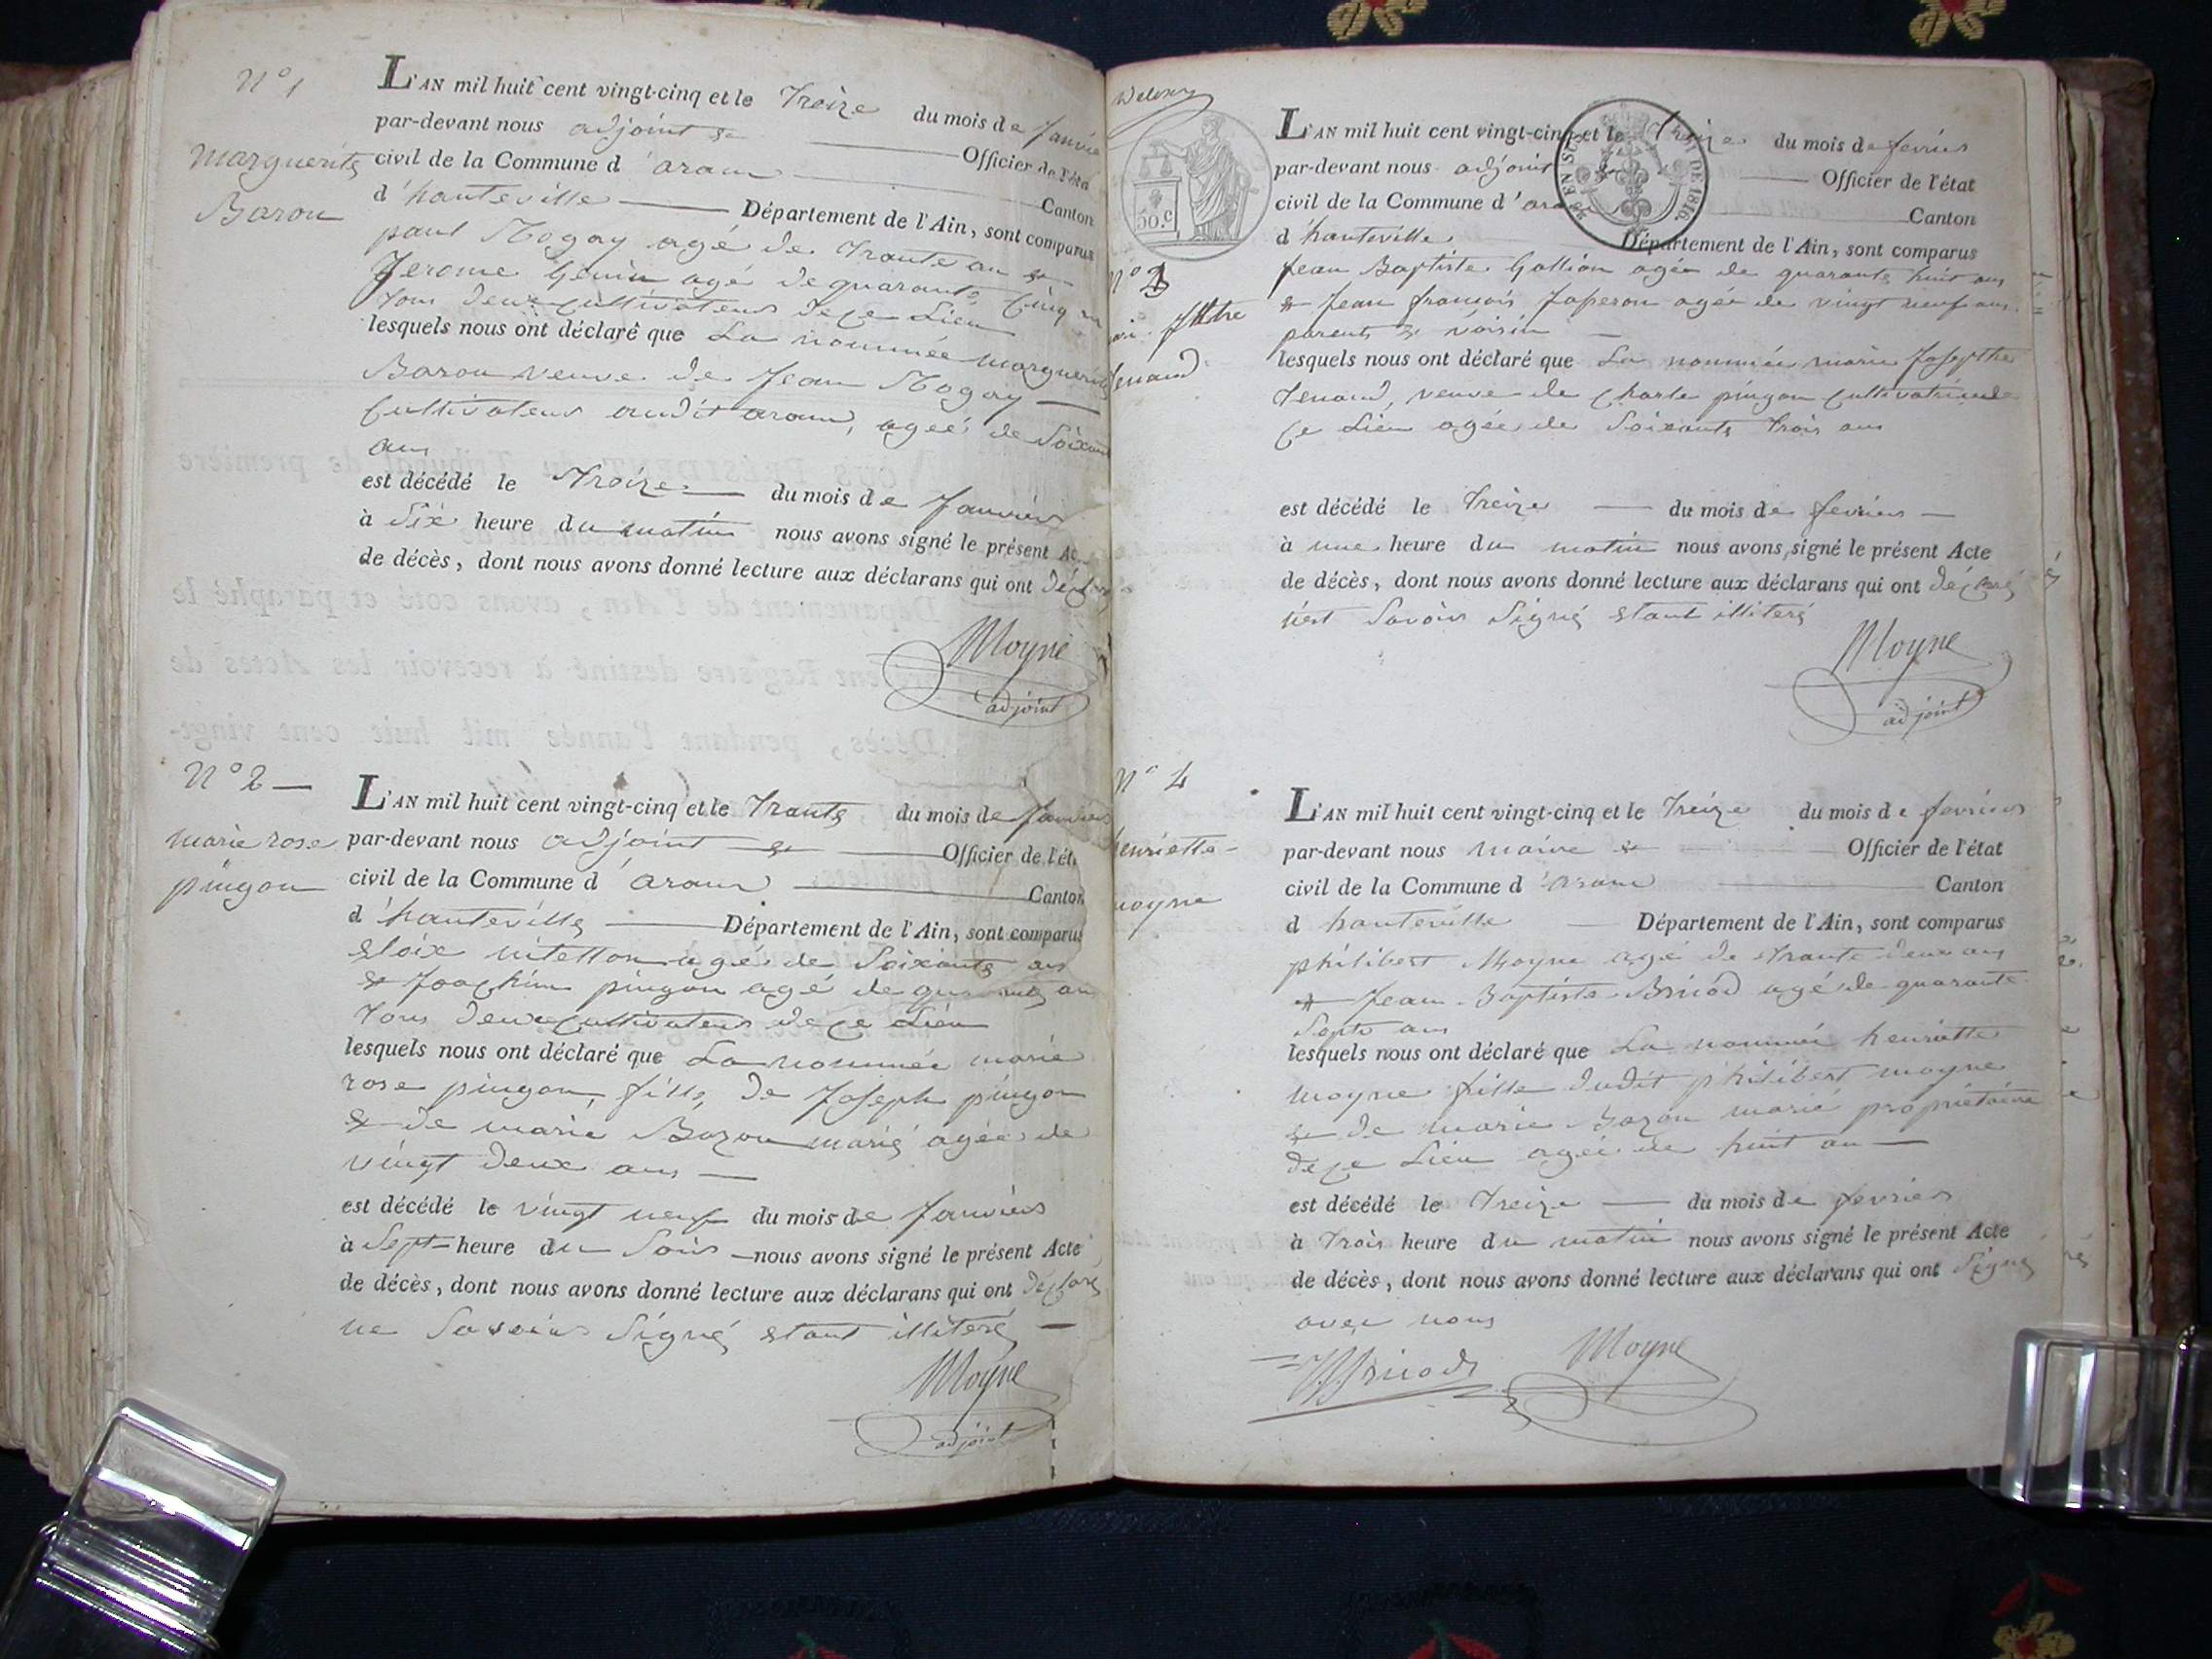 N° 1
Marguerite
Baron
L'AN mil huit cent vingt-cinq et le Treize du mois de Janvier
par-devant nous adjoint & Officier de l'éta
civil de la Commune d'aranc
Canton
d'hauteville Département de l'Ain, sont comparus
paul Mogay agé de Trante an &
Jerome Genin agé de quarante Cinq
Tous deux Cultivateur de Ce Lieu
lesquels nous ont déclaré que La nommée Marguerite
Baron veuve de Jean Mogay
Cultivateur audit aranc, agée de Soixante
ans
est décédé le Treize du mois de Janvier
à Six heure du matin nous avons signé le présent Ac
de décès, dont nous avons donné lecture aux déclarans qui ont déclaré
Moyne
adjoint
N° 2
marie rose
pingon
L'AN mil huit cent vingt-cinq et le Trante du mois de Janvier
par-devant nous adjoint & Officier de l'éta
civil de la Commune d aranc
Canton
d'hauteville Département de l'Ain, sont comparus
eloix agé de Soixante ans
& Joachim pingon agé de quarante an
Tous deux Cultivateur de Ce Lieu
lesquels nous ont déclaré que La nommée marie
rose pingon, fille de Joseph pingon
& de marie Bozon marié agée de
vingt deux ans
est décédé le vingt neuf du mois de Janvier
à Sept heure du Soir nous avons signé le présent Acte
de décès, dont nous avons donné lecture aux déclarans qui ont déclaré
ne Savoir Signé etant illiteré
Moyne
adjoint
50.C
EN SUS
DE 1816
L'AN mil huit cent vingt-cinq et le Treize du mois de fevrier
par-devant nous adjoint & Officier de l'état
civil de la Commune d'aranc
Canton
d'hauteville Département de l'Ain, sont comparus
N° 3
Jean Baptiste Gallion agée de quarante huit ans
& Jean françois Japeron agée de vingt neuf ans
parents & voisin
lesquels nous ont déclaré que La nommée marie Josephte
Tenand, veuve de Charle pingon Cultivatrice de
Ce Lieu agée de Soixante Trois ans
est décédé le Treize du mois de fevrier
à une heure du matin nous avons signé le présent Acte
de décès, dont nous avons donné lecture aux déclarans qui ont déclaré
Savoir Signé etant illiteré
Moyne
adjoint
N° 4
henriette
moyne
L'AN mil huit cent vingt-cinq et le Treize du mois de fevrier
par-devant nous maire & Officier de l'état
civil de la Commune d'aranc
Canton
d hauteville Département de l'Ain, sont comparus
philibert Moyne agé de Trante deux ans
& Jean Baptiste Bruod agé de quarante
Sept ans
lesquels nous ont déclaré que La nommée henriette
moyne fille dudit philibert moyne
& de marie Bozon marié propriétaire
de Ce Lieu agée de huit an
est décédé le Treize du mois de fevrier
à Trois heure du matin nous avons signé le présent Acte
de décès, dont nous avons donné lecture aux déclarans qui ont Signé
avec nous
Moyne